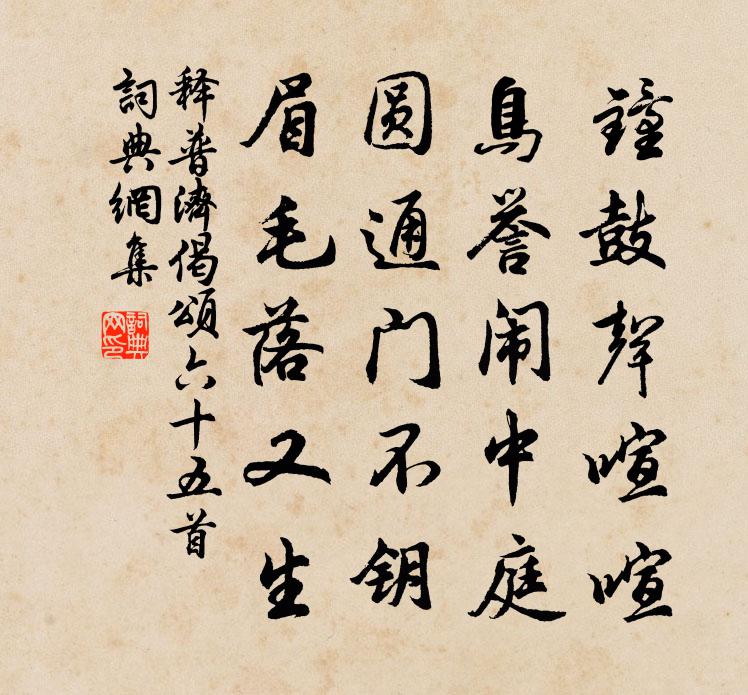 鐘鼓聲喧喧
鳥誉闹中庭
圆通门不钥
眉毛落又生
释普濟偈頌六十五首
詞典網集
詞典网印